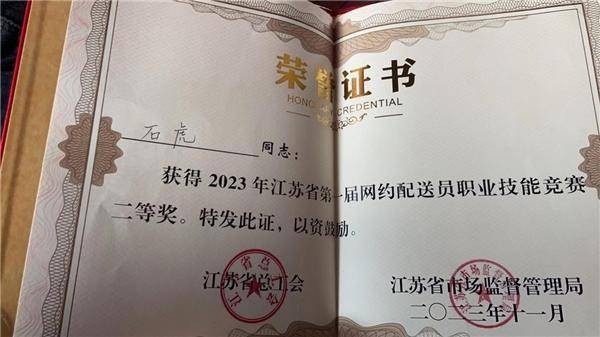 荣誉证书
HONO CREDENTIAL
石虎 同志：
获得 2023 年江苏省第一届网约配送员职业技能竞赛
二等奖。特发此证，以资鼓励。
江苏省总工会 江苏省市场监督管理局
二〇二三年十一月
江苏省总工会
江苏省市场监督管理局